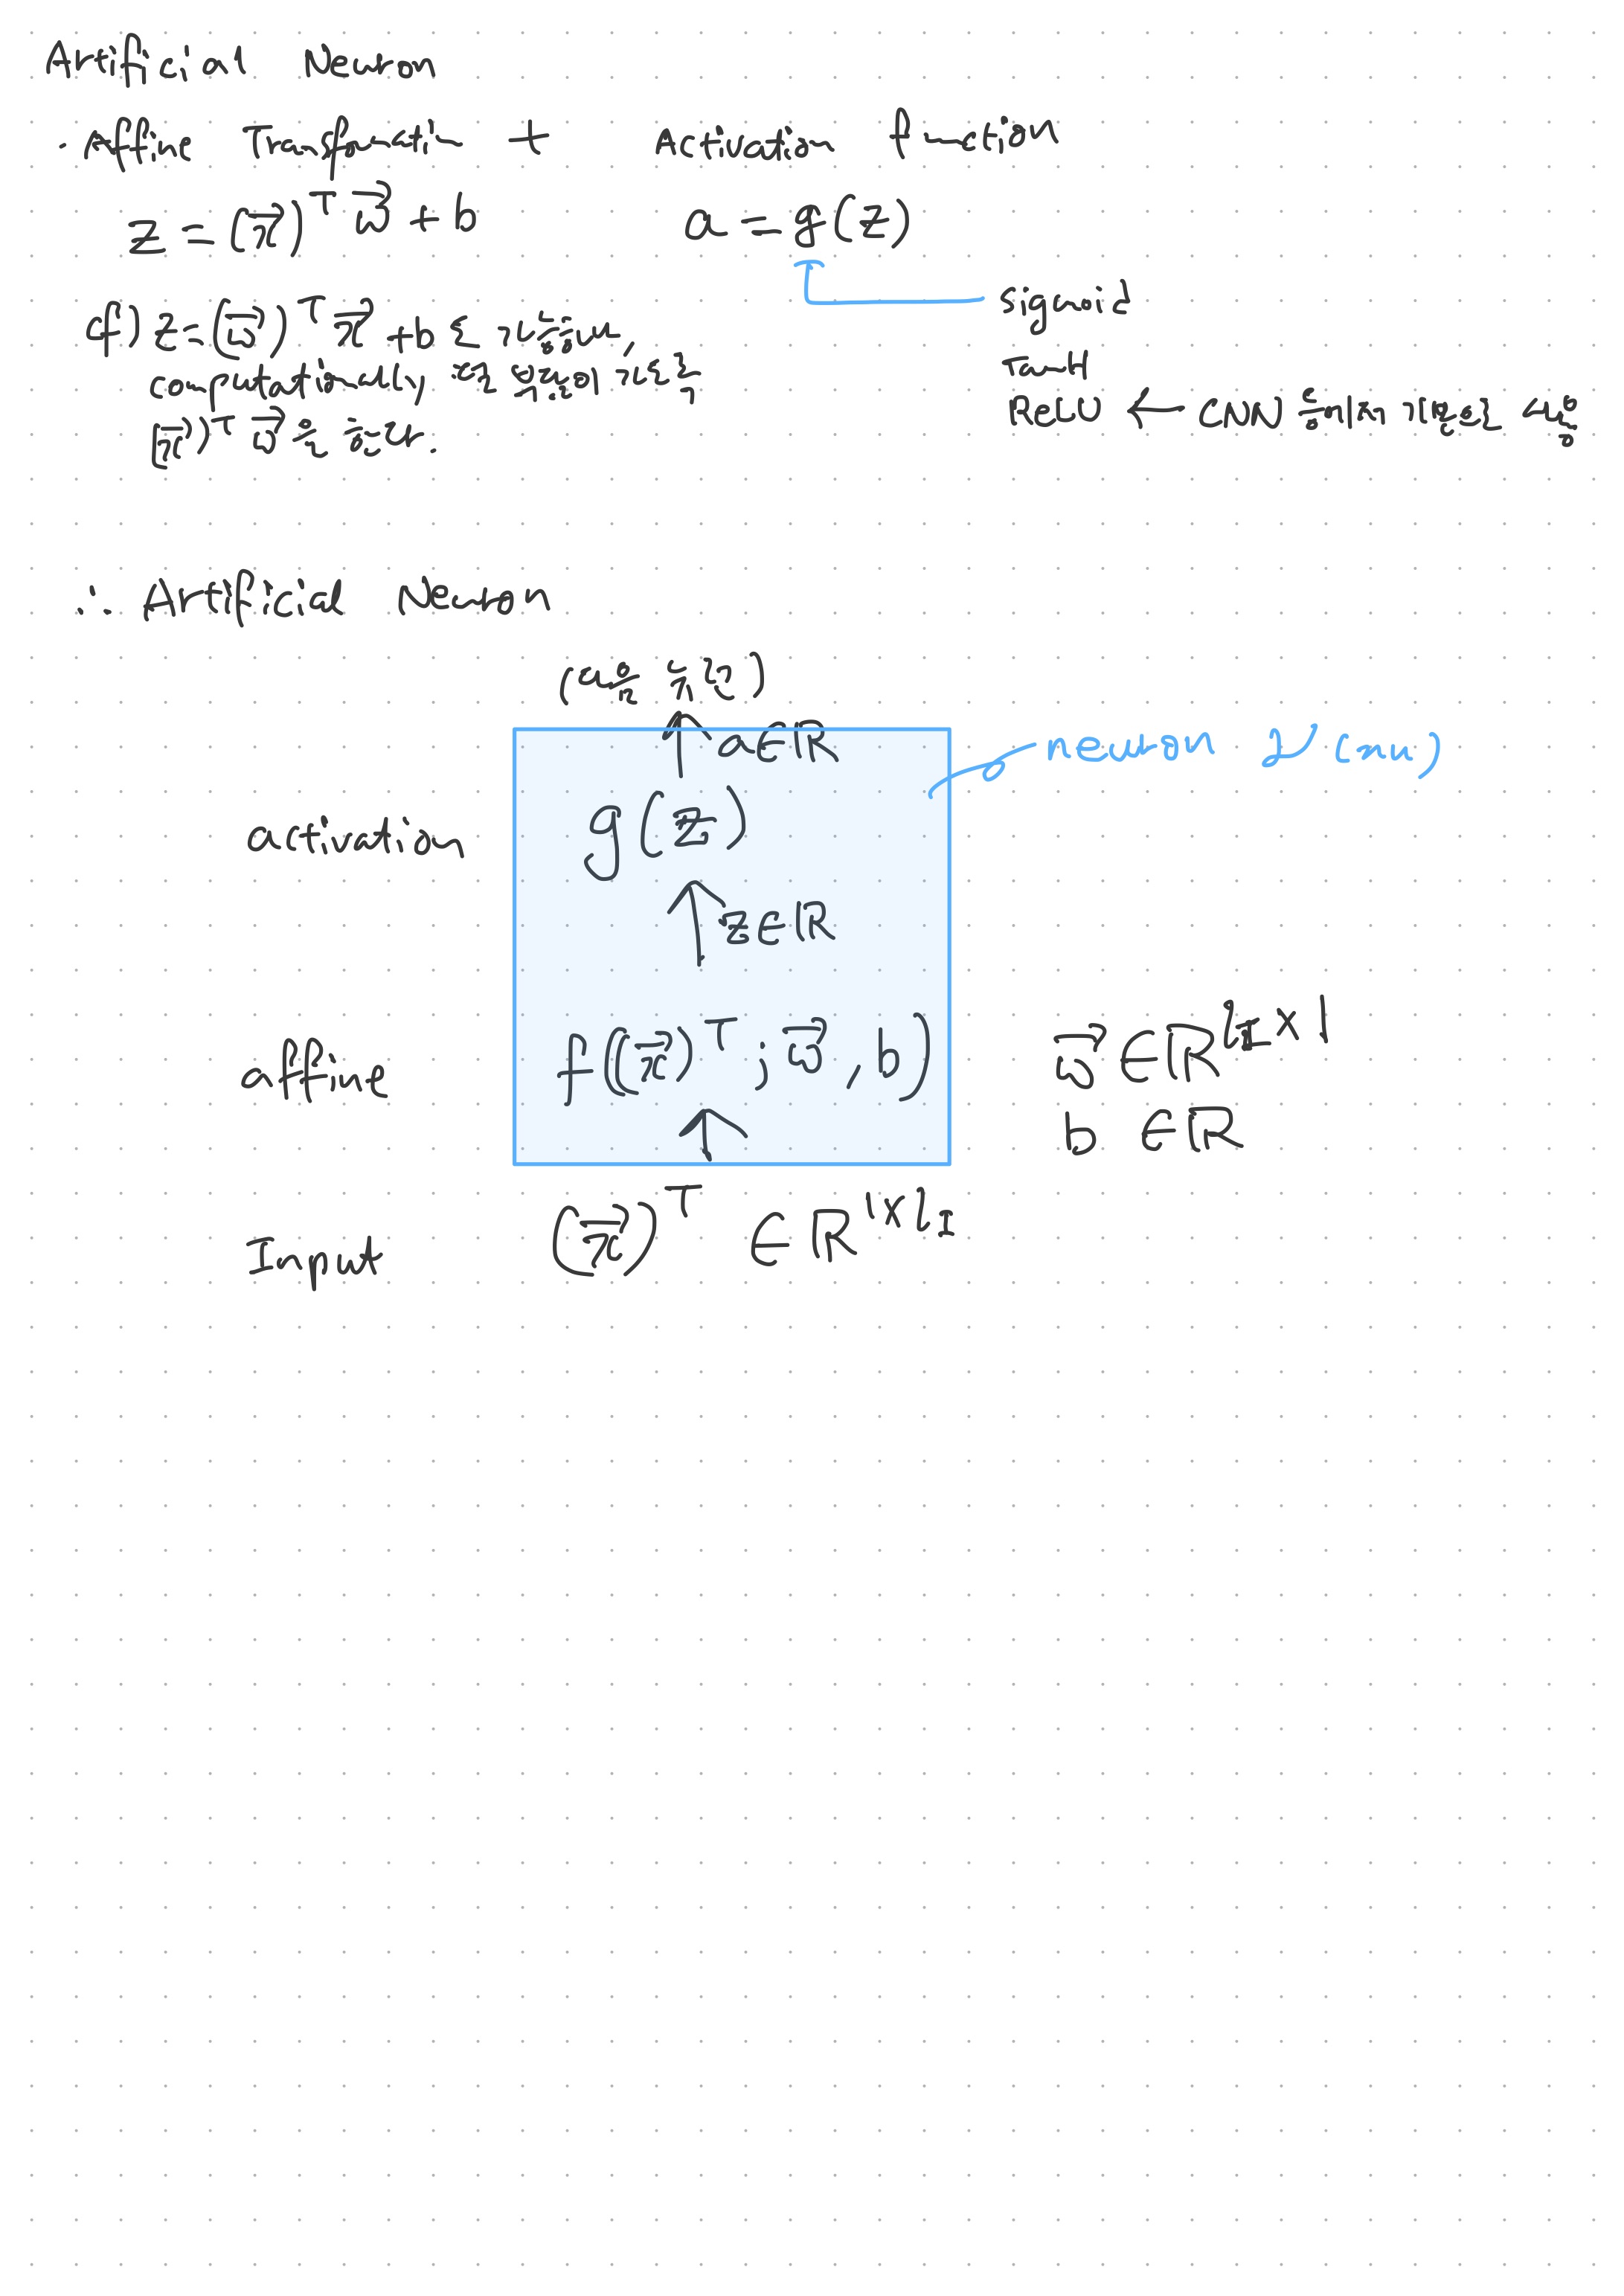 Artificial Neuron
· Affine Transformation + Activation function
z = (x⃗)ᵀ w⃗ + b
a = g(z)
cf) z = (w⃗)ᵀ x⃗ + b도 가능하나,
computationally
(x⃗)ᵀ w⃗ 을
sigmoid
TanH
ReLU ← CNN 등에서 사용
∴ Artificial Neuron
(다음 뉴런)
↑ a∈ℝ
neuron
activation g(z)
↑ z∈ℝ
affine f((x⃗)ᵀ ; w⃗, b)
↑
w⃗ ∈ℝ^{l_I × 1}
b ∈ℝ
Input (x⃗)ᵀ ∈ ℝ^{1×l_I}